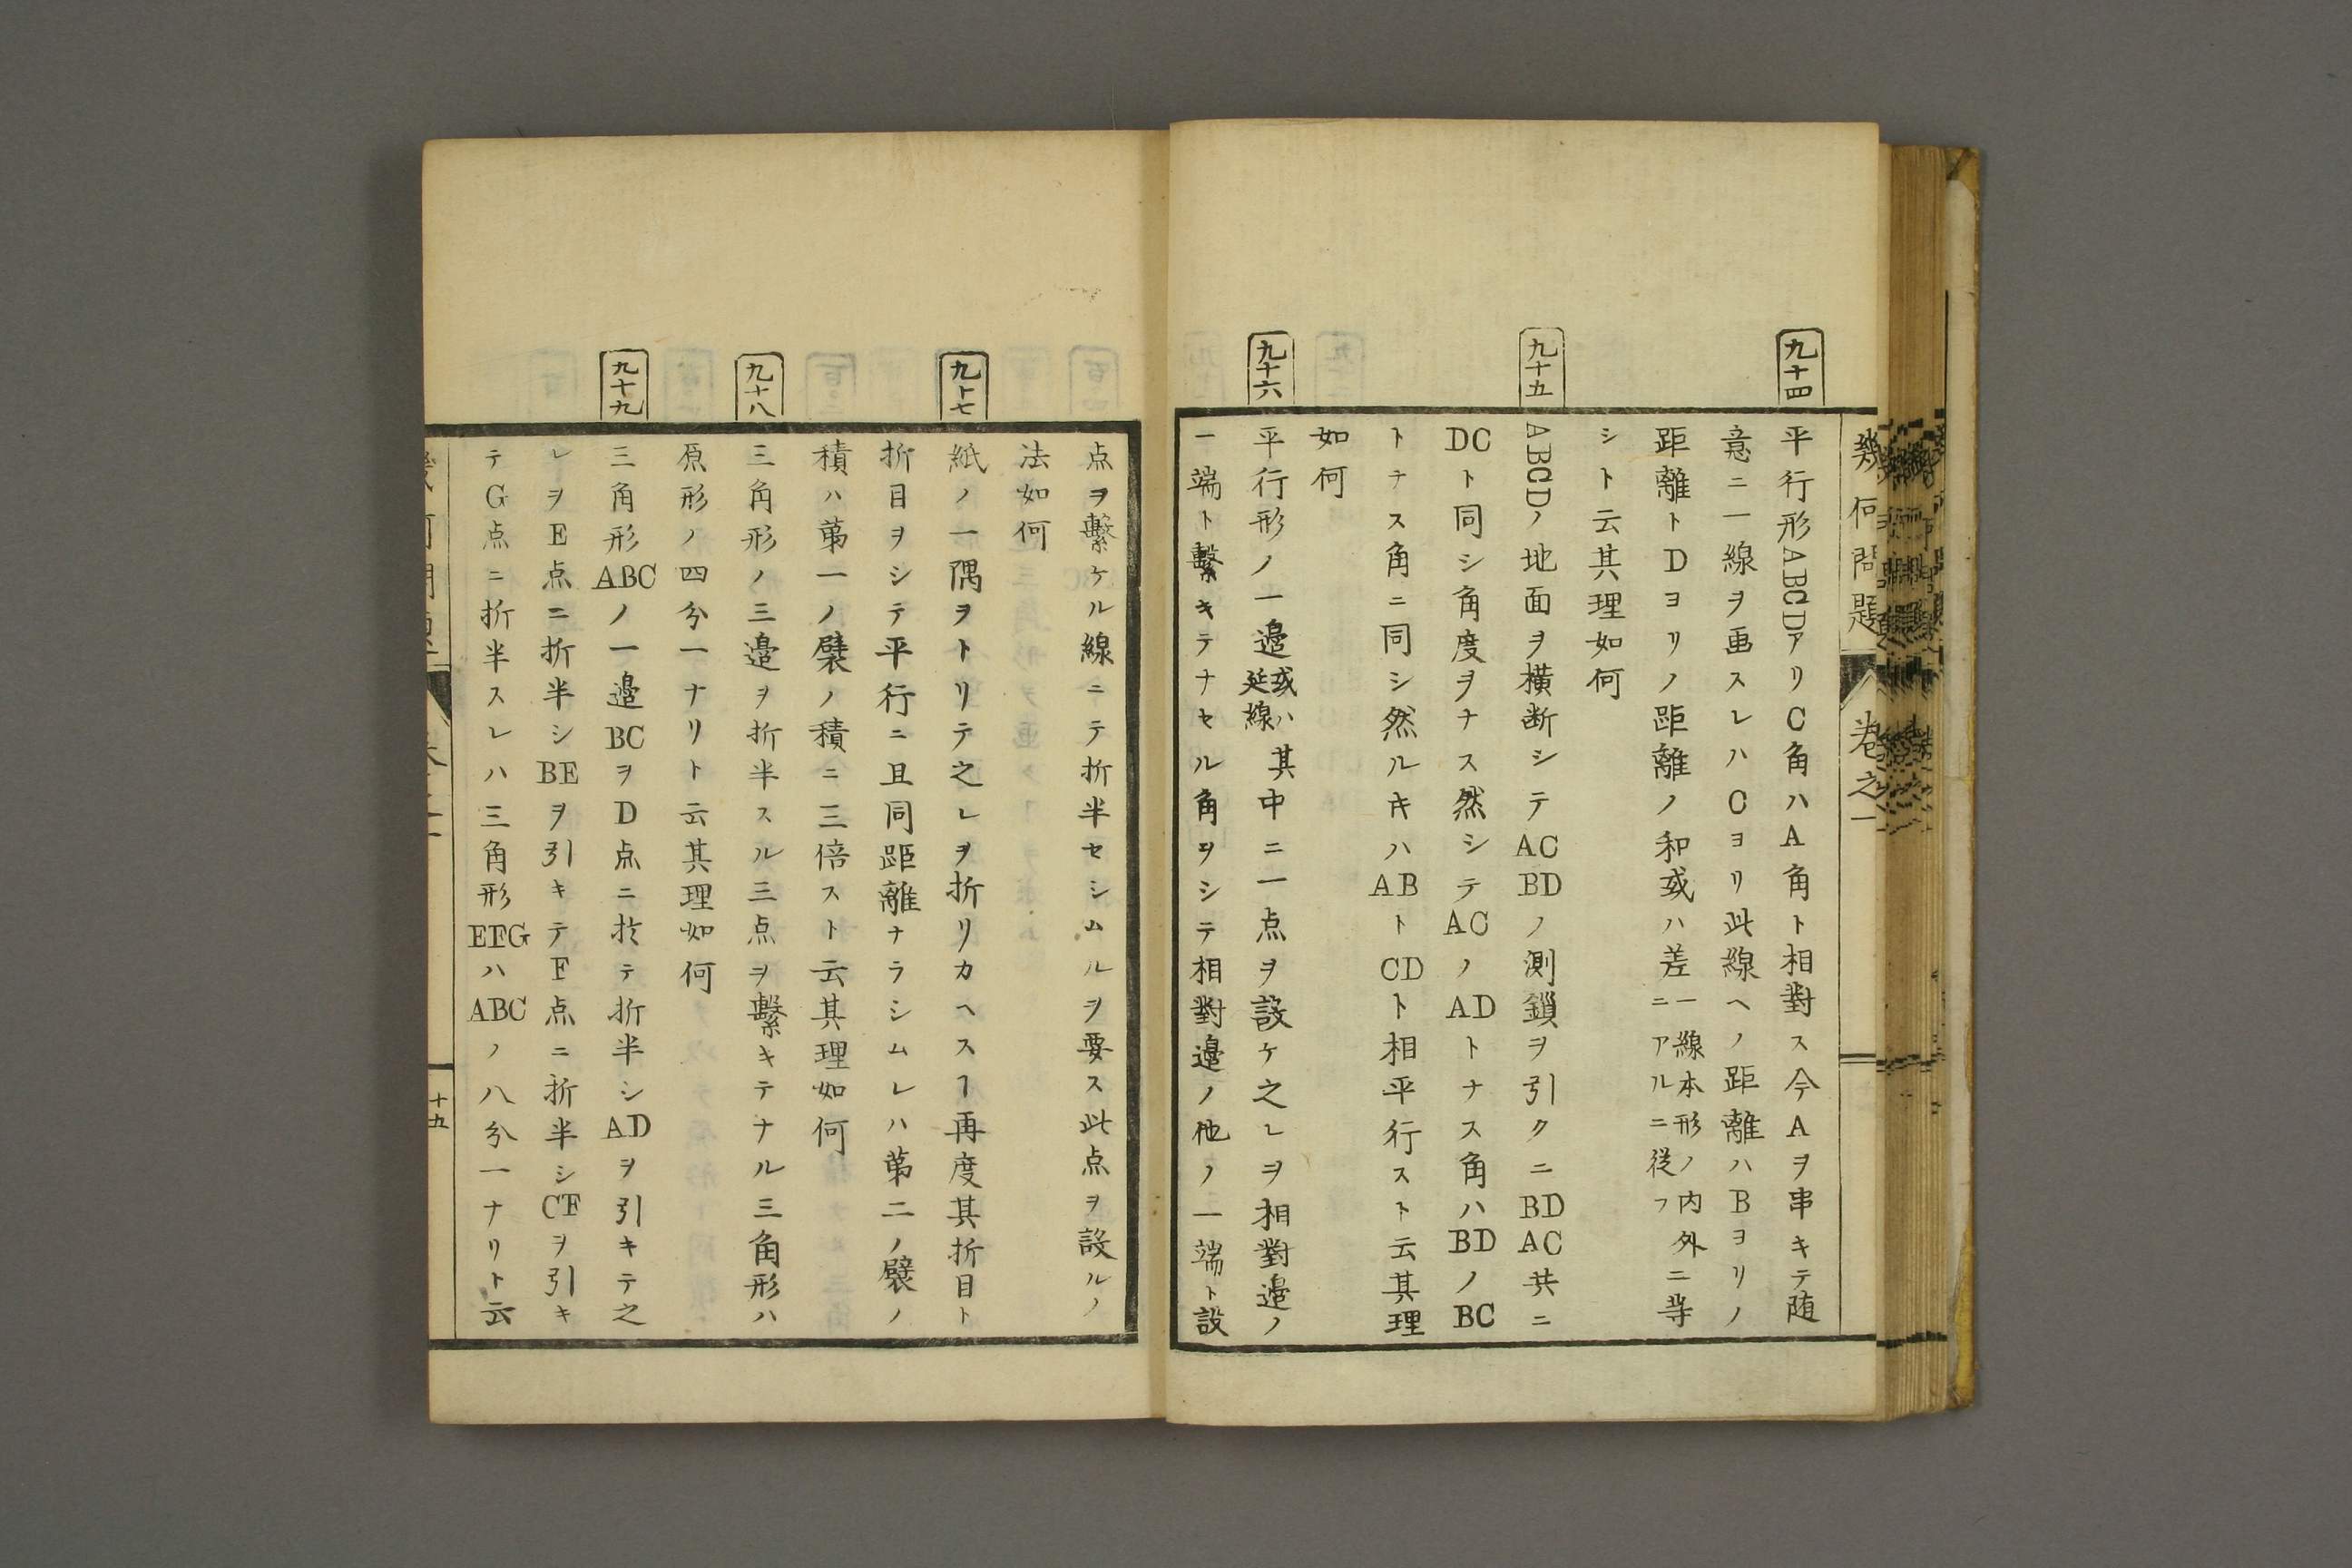 幾何問題 卷之一
九十四
平行形ABCDアリC角ハA角ト相對ス今Aヲ串キテ随
意ニ一線ヲ画スレハCヨリ此線ヘノ距離ハBヨリノ
距離トDヨリノ距離ノ和或ハ差一線本形ノ内外ニアルニ従フニ等
シト云其理如何
九十五
ABCDノ地面ヲ横断シテACBDノ測鎖ヲ引クニBDAC共ニ
DCト同シ角度ヲナス然シテACノADトナス角ハBDノBC
トナス角ニ同シ然ルキハABトCDト相平行スト云其理
如何
九十六
平行形ノ一邉或ハ延線其中ニ一点ヲ設ケ之レヲ相對邉ノ
一端ト繫キテナセル角ヲシテ相對邉ノ他ノ一端ト設
点ヲ繫ケル線ニテ折半セシムルヲ要ス此点ヲ設ルノ
法如何
九十七
紙ノ一隅ヲトリテ之レヲ折リカヘスヿ再度其折目ト
折目ヲシテ平行ニ且同距離ナラシムレハ第二ノ襞ノ
積ハ第一ノ襞ノ積ニ三倍スト云其理如何
九十八
三角形ノ三邉ヲ折半スル三点ヲ繫キテナル三角形ハ
原形ノ四分一ナリト云其理如何
九十九
三角形ABCノ一邉BCヲD点ニ於テ折半シADヲ引キテ之
レヲE点ニ折半シBEヲ引キテF点ニ折半シCFヲ引キ
テG点ニ折半スレハ三角形EFGハABCノ八分一ナリト云
十五